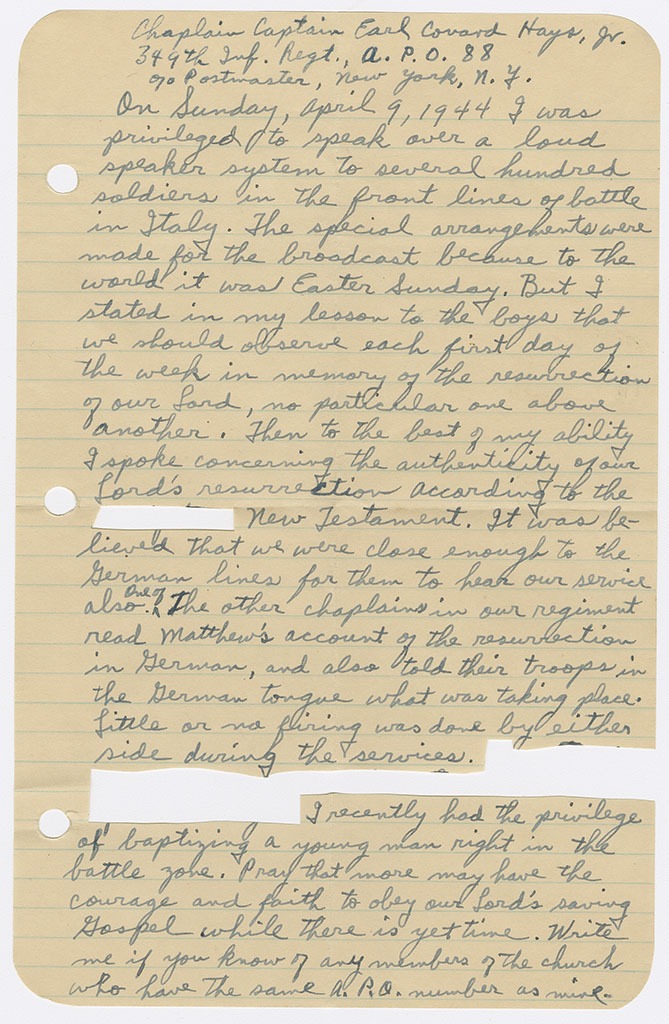 Chaplain Captain Earl Covard Hays, Jr.
349th Inf. Regt., A. P. O. 88
c/o Postmaster, New York, N. Y.
On Sunday, April 9, 1944 I was
privileged to speak over a loud
speaker system to several hundred
soldiers in the front lines of battle
in Italy. The special arrangements were
made for the broadcast because to the
world it was Easter Sunday. But I
stated in my lesson to the boys that
we should observe each first day of
the week in memory of the resurrection
of our Lord, no particular one above
another. Then to the best of my ability
I spoke concerning the authenticity of our
Lord's resurrection according to the
New Testament. It was be-
lieved that we were close enough to the
German lines for them to hear our service
also. One of The other chaplains in our regiment
read Matthew's account of the resurrection
in German, and also told their troops in
the German tongue what was taking place.
Little or no firing was done by either
side during the services.
I recently had the privilege
of baptizing a young man right in the
battle zone. Pray that more may have the
courage and faith to obey our Lord's saving
Gospel while there is yet time. Write
me if you know of any members of the church
who have the same A. P. O. number as mine.